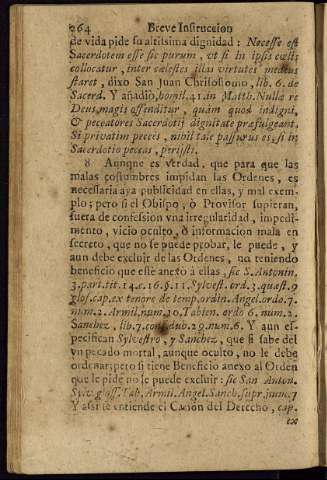 264 Breve Instruccion
de vida pide su altissima dignidad: Necesse est
Sacerdotem esse sic purum, vt si in ipsis cœlis
collocatur, inter cælestes illas virtutes medius
staret, dixo San Chrisostomo, lib. 6. de
Sacerd. Y añadiò, homil. 41. in Matth. Nulla re
Deus magis offenditur, quàm quod indigni,
& peccatores Sacerdotij dignitate præfulgeant.
Si privatim pecces, nihil tale passurus es, si in
Sacerdotio peccas, peristi.
8 Aunque es verdad, que para que las
malas costumbres impidan las Ordenes, es
necessaria aya publicidad en ellas, y mal exem-
plo; pero si el Obispo, ò Provisor supieran,
fuera de confession vna irregularidad, impedi-
mento, vicio oculto, ò informacion mala en
secreto, que no se puede probar, le puede, y
aun debe excluir de las Ordenes, no teniendo
beneficio que estè anexo à ellas, sic S. Antonin.
3. part. tit. 14. c. 16. §. 11. Sylvest. ord. 3. quæst. 9
glos. cap. ex tenore de temp. ordin. Angel. ordo. 7.
num. 2. Armil. num. 10. Tabien. ordo 6. num. 2.
Sanchez, lib. 7. cons. dub. 29. num. 6. Y aun es-
pecifican Sylvestro, y Sanchez, que si sabe del
vn pecado mortal, aunque oculto, no le debe
ordenar; pero si tiene Beneficio anexo al Orden
que le pide no le puede excluir: sic San Anton.
Sylv. gloss. Tab. Armil. Angel. Sanch. supr. num. 7
Y assi se entiende el Canon del Derecho, cap.
ex